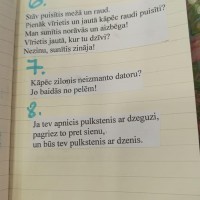 6.
Stāv puisītis mežā un raud.
Pienāk vīrietis un jautā kāpēc raudi puisīti?
Man sunītis norāvās un aizbēga!
Vīrietis jautā, kur tu dzīvi?
Nezinu, sunītis zināja!
7.
Kāpēc zilonis neizmanto datoru?
Jo baidās no pelēm!
8.
Ja tev apnicis pulkstenis ar dzeguzi,
pagriez to pret sienu,
un būs tev pulkstenis ar dzenis.